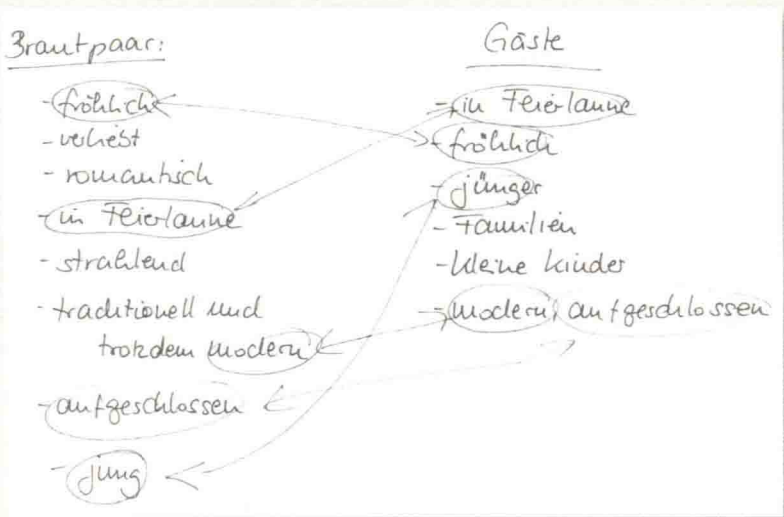 Brautpaar:
- fröhlich
- verliebt
- romantisch
- in Feierlaune
- strahlend
- traditionell und
trotzdem modern
- aufgeschlossen
- jung
Gäste
- in Feierlaune
- fröhlich
- jünger
- Familien
- kleine Kinder
- modern, aufgeschlossen